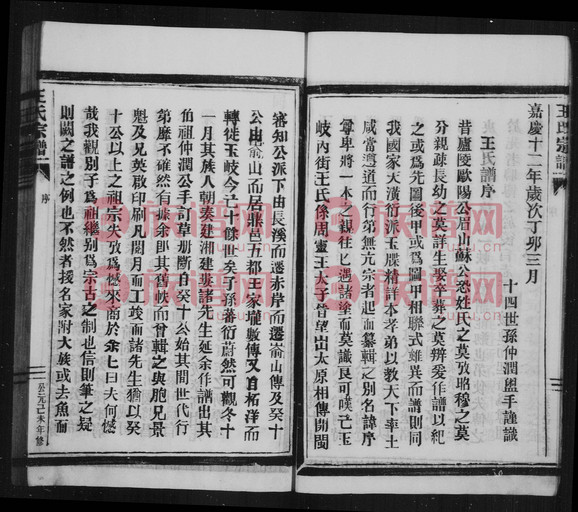 王氏宗譜
嘉慶十二年歲次丁卯三月
十四世孫仲潤盥手謹識
王氏譜序
昔廬陵歐陽公眉山蘇公恐姓氏之莫攷昭穆之莫
分親疎長幼之莫詳生娶卒葬之莫辨爰作譜以紀
之或爲先圖後甲或爲圖甲相聯式雖異而譜則同
我國家天潢衍派玉牒精詳本孝弟以教天下率土
咸當遵道而行第無亢宗者起而纂輯之别名諱序
尊卑將一本之親往匕遇諸塗而莫識良可嘆已玉
岐內街王氏係周靈王太子晉望出太原相傳開閩
審知公派下由長溪而遷赤岸而遷嵛山傳及癸十
公由嵛山而居東邑五都王家壠數傳又自柘洋而
轉徙玉岐今已十餘世矣子孫蕃衍蔚然可觀冬十
一月其族人朝奏建湘建婁諸先生延余作譜出其
伯祖仲潤公手訂草册斷自癸十公始其間世代行
第靡不確然有據余卽其舊帙而曾輯之與胞兄景
魁及兄英啟印刷凡兩閱月而工竣而諸先生猶以癸
十公以上之祖宗失攷爲憾來商於余匕曰夫何憾
哉我觀别子爲祖繼别爲宗古之制也信則筆之疑
則闕之譜之例也不然者援名家附大族或去魚而
王氏宗譜
序
公元己未年修